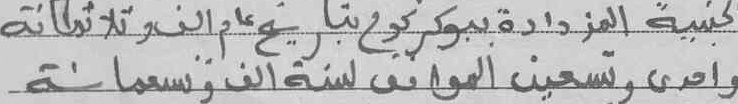 لحبيبة المزدادة ببوكركوح بتاريخ عام الف وثلاثمائة
واحدى وتسعين الموافق لسنة الف وتسعمائة